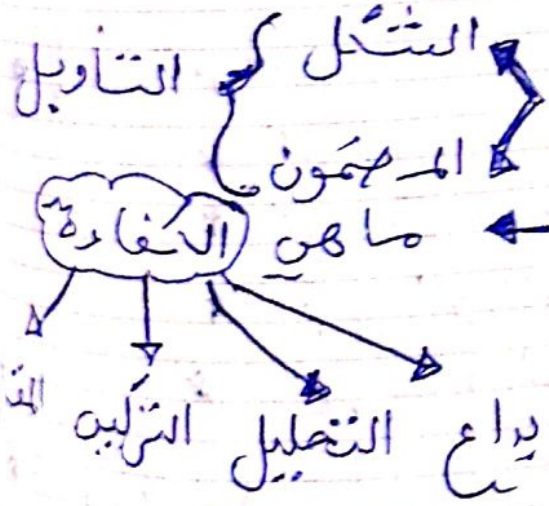 الشكل
التأويل
المضمون
ما هي الكفاءة
يداع التحليل التركيب المت